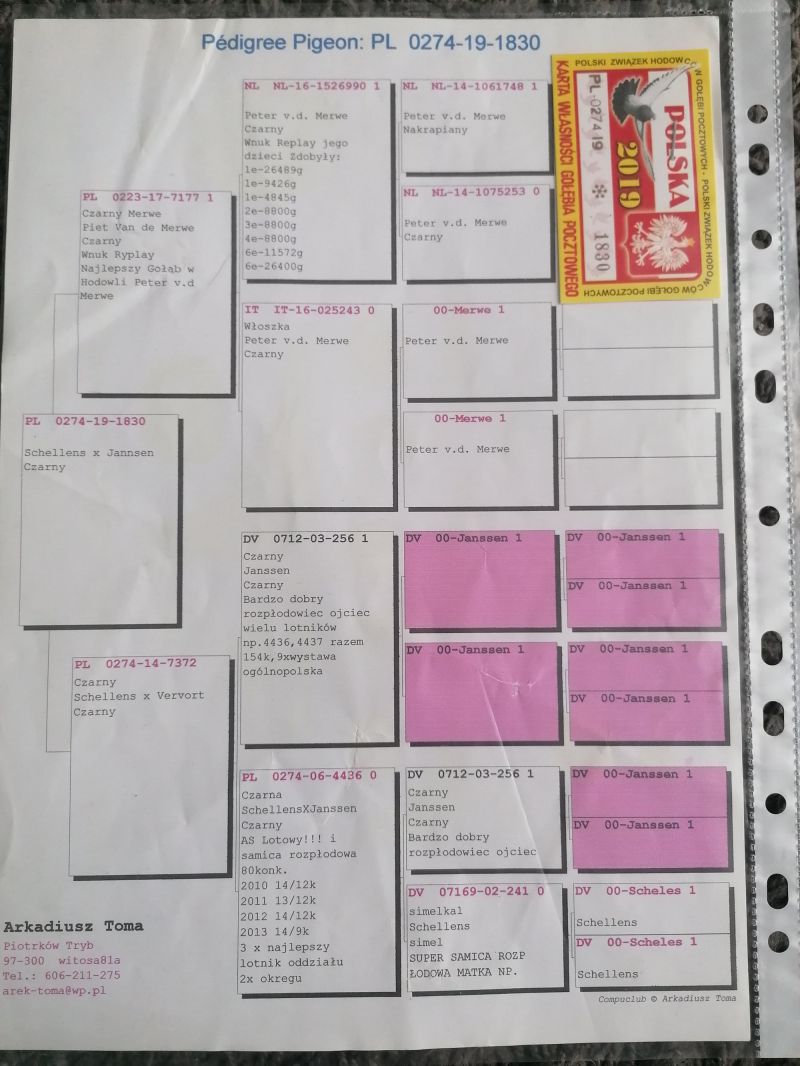 Pédigree Pigeon: PL 0274-19-1830
POLSKI ZWIĄZEK HODOWCÓW GOŁĘBI POCZTOWYCH - POLSKI ZWIĄZEK HODOWCÓW GOŁĘBI POCZTOWYCH
KARTA WŁASNOŚCI GOŁĘBIA POCZTOWEGO
PL 0274 19 * 1830
POLSKA
2019
PL 0274-19-1830
Schellens x Jannsen
Czarny
PL 0223-17-7177 1
Czarny Merwe
Piet Van de Merwe
Czarny
Wnuk Ryplay
Najlepszy Gołąb w
Hodowli Peter v.d
Merwe
PL 0274-14-7372
Czarny
Schellens x Vervort
Czarny
NL NL-16-1526990 1
Peter v.d. Merwe
Czarny
Wnuk Replay jego
dzieci Zdobyły:
1e-26489g
1e-9426g
1e-4845g
2e-8800g
3e-8800g
4e-8800g
6e-11572g
6e-26400g
IT IT-16-025243 0
Włoszka
Peter v.d. Merwe
Czarny
DV 0712-03-256 1
Czarny
Janssen
Czarny
Bardzo dobry
rozpłodowiec ojciec
wielu lotników
np.4436,4437 razem
154k,9xwystawa
ogólnopolska
PL 0274-06-4436 0
Czarna
SchellensXJanssen
Czarny
AS Lotowy!!! i
samica rozpłodowa
80konk.
2010 14/12k
2011 13/12k
2012 14/12k
2013 14/9k
3 x najlepszy
lotnik oddziału
2x okregu
NL NL-14-1061748 1
Peter v.d. Merwe
Nakrapiany
NL NL-14-1075253 0
Peter v.d. Merwe
Czarny
00-Merwe 1
Peter v.d. Merwe
00-Merwe 1
Peter v.d. Merwe
DV 00-Janssen 1
DV 00-Janssen 1
DV 0712-03-256 1
Czarny
Janssen
Czarny
Bardzo dobry
rozpłodowiec ojciec
DV 07169-02-241 0
simelkal
Schellens
simel
SUPER SAMICA ROZP
ŁODOWA MATKA NP.
DV 00-Janssen 1
DV 00-Janssen 1
DV 00-Janssen 1
DV 00-Janssen 1
DV 00-Janssen 1
DV 00-Janssen 1
DV 00-Scheles 1
Schellens
DV 00-Scheles 1
Schellens
Arkadiusz Toma
Piotrków Tryb
97-300 witosa81a
Tel.: 606-211-275
arek-toma@wp.pl
Compuclub © Arkadiusz Toma